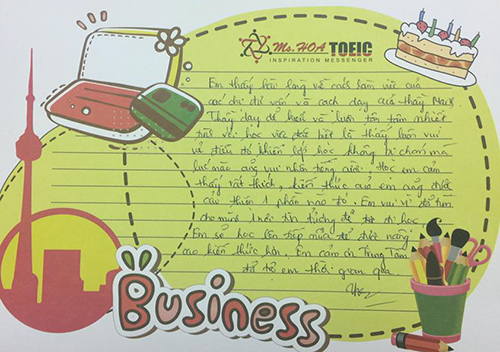 Ms. HOA TOEIC
INSPIRATION MESSENGER
Em thấy hài lòng về cách làm việc của
các chị tư vấn và cách dạy của thầy
Thầy dạy dễ hiểu và luôn tận tâm nhiệt
tình và học viên đặt biệt là thầy luôn vui
vẻ điều đó khiến lớp học không bị chán mà
lúc nào cũng vui nhộn tiếng cười. Học em cảm
thấy rất thích, kiến thức của em cũng được
cải thiện 1 phần nào đó. Em vui vì đã tìm
cho mình 1 nơi tin tưởng để đi học.
Em sẽ học lên tiếp nữa để đạt năng
cao kiến thức hơn. Em cảm ơn Trung tâm
đã đỡ em thời gian qua.
Business